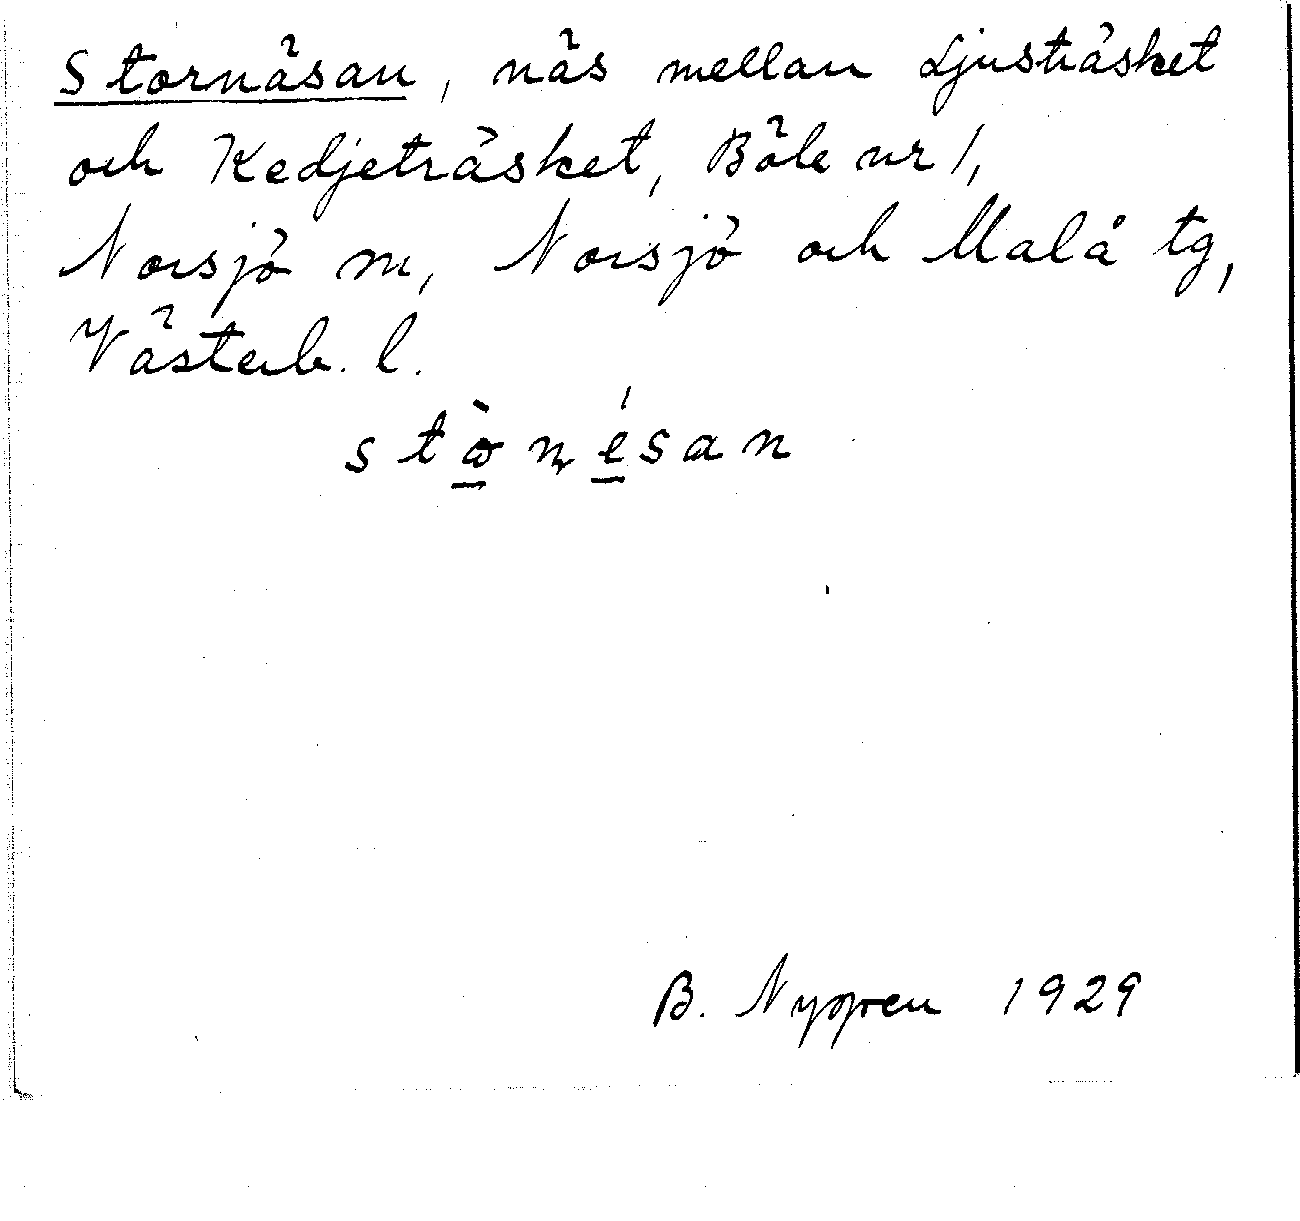 Stornäsan, näs mellan Ljusträsket
och Kedjeträsket, Böle nr 1,
Norsjö sn, Norsjö och Malå tg,
Västerb. l.
stò̠ɳé̠san
B. Nygren 1929